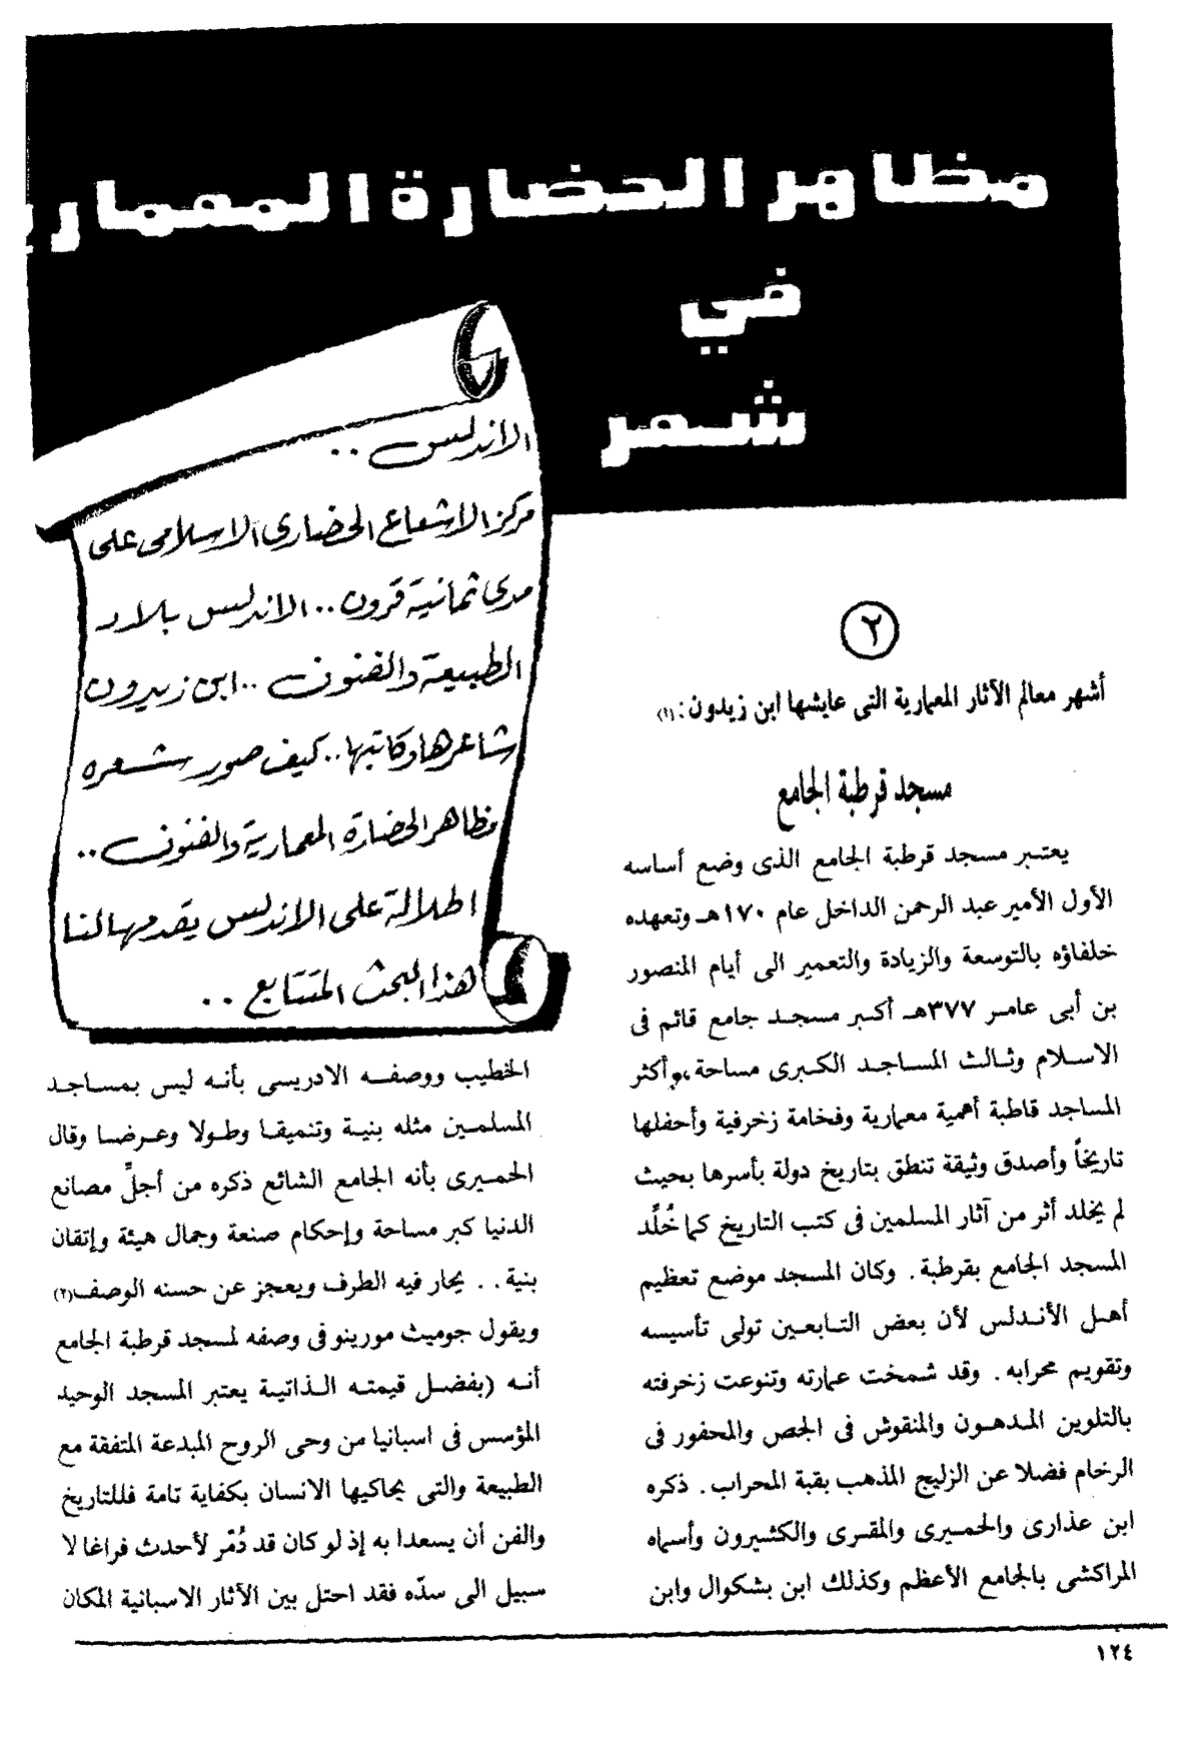 مظاهر الحضارة المعماري
في
شعر
الاندلس ..
مركز الاشعاع الحضارى الاسلامى على
مدى ثمانية قرون .. الاندلس بلاد
الطبيعة والفنون .. ابن زيدون
شاعرها وكاتبها .. كيف صور شعره
مظاهر الحضارة المعمارية والفنون ..
اطلالة على الاندلس يقدمها لنا
هذا البحث المتتابع ..
٢
أشهر معالم الآثار المعمارية التى عايشها ابن زيدون: (١)
مسجد قرطبة الجامع
يعتبر مسجد قرطبة الجامع الذى وضع أساسه
الأول الأمير عبد الرحمن الداخل عام ١٧٠هـ وتعهده
خلفاؤه بالتوسعة والزيادة والتعمير الى أيام المنصور
بن أبى عامر ٣٧٧هـ أكبر مسجد جامع قائم فى
الاسلام وثالث المساجد الكبرى مساحة، وأكثر
المساجد قاطبة أهمية معمارية وفخامة زخرفية وأحفلها
تاريخاً وأصدق وثيقة تنطق بتاريخ دولة بأسرها بحيث
لم يخلد أثر من آثار المسلمين فى كتب التاريخ كما خُلَّد
المسجد الجامع بقرطبة. وكان المسجد موضع تعظيم
أهل الأندلس لأن بعض التابعين تولى تأسيسه
وتقويم محرابه. وقد شمخت عمارته وتنوعت زخرفته
بالتلوين المدهون والمنقوش فى الجص والمحفور فى
الرخام فضلا عن الزليج المذهب بقبة المحراب. ذكره
ابن عذارى والحميرى والمقرى والكثيرون وأسماه
المراكشى بالجامع الأعظم وكذلك ابن بشكوال وابن
الخطيب ووصفه الادريسى بأنه ليس بمساجد
المسلمين مثله بنية وتنميقا وطولا وعرضا وقال
الحميرى بأنه الجامع الشائع ذكره من أجلِّ مصانع
الدنيا كبر مساحة وإحكام صنعة وجمال هيئة وإتقان
بنية .. يحار فيه الطرف ويعجز عن حسنه الوصف (٢)
ويقول جوميث مورينو فى وصفه لمسجد قرطبة الجامع
أنه (بفضل قيمته الذاتية يعتبر المسجد الوحيد
المؤسس فى اسبانيا من وحى الروح المبدعة المتفقة مع
الطبيعة والتى يحاكيها الانسان بكفاية تامة فللتاريخ
والفن أن يسعدا به إذ لو كان قد دُمّر لأحدث فراغا لا
سبيل الى سدّه فقد احتل بين الآثار الاسبانية المكان
١٢٤